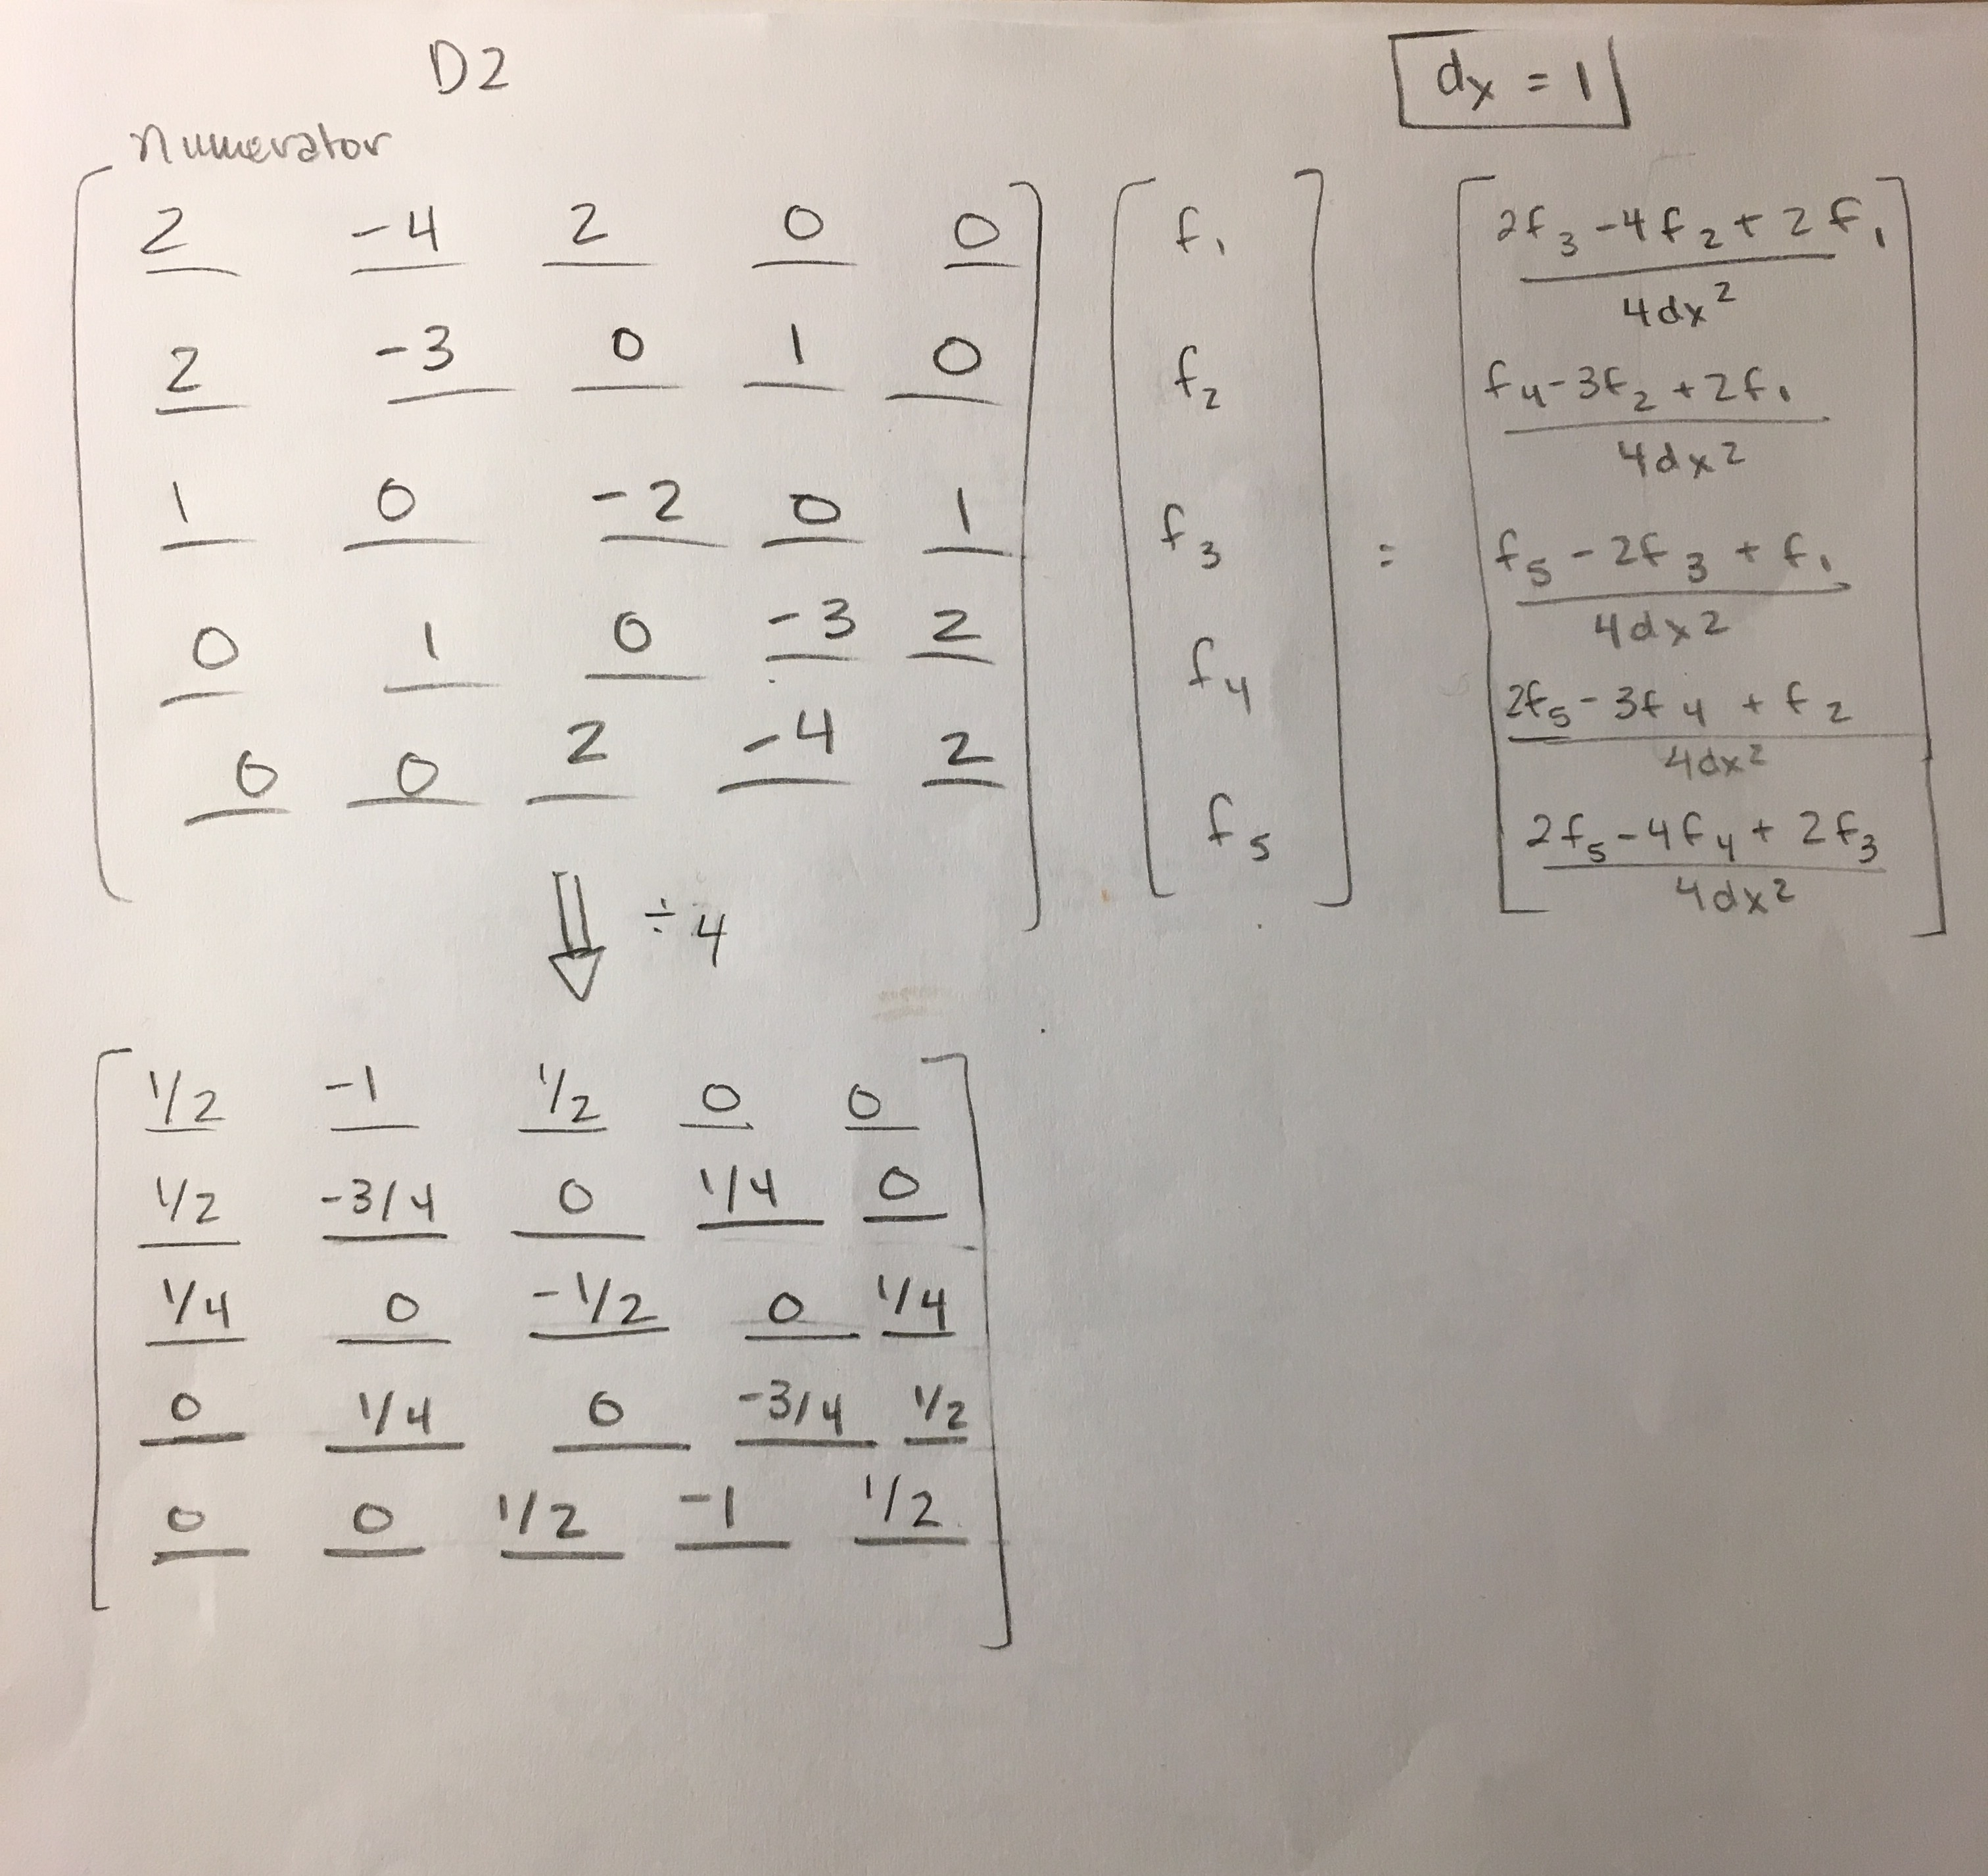 D2
dx = 1
numerator
2 -4 2 0 0
2 -3 0 1 0
1 0 -2 0 1
0 1 0 -3 2
0 0 2 -4 2
f1
f2
f3
f4
f5
=
2f3 - 4f2 + 2f1
4dx²
f4 - 3f2 + 2f1
4dx2
f5 - 2f3 + f1
4dx2
2f5 - 3f4 + f2
4dx2
2f5 - 4f4 + 2f3
4dx2
÷ 4
1/2 -1 1/2 0 0
1/2 -3/4 0 1/4 0
1/4 0 -1/2 0 1/4
0 1/4 0 -3/4 1/2
0 0 1/2 -1 1/2